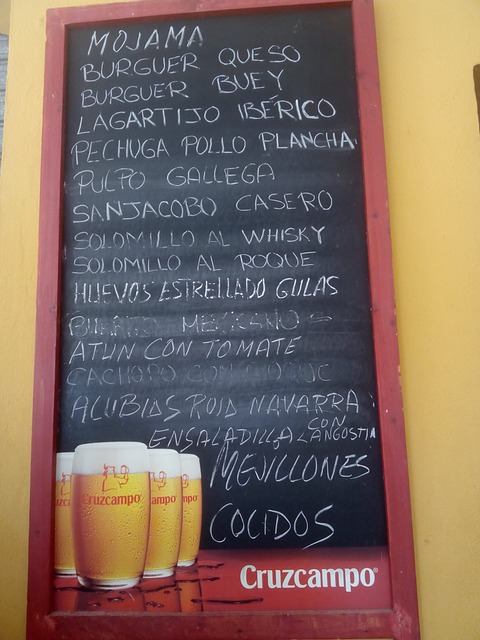 MOJAMA
BURGUER QUESO
BURGUER BUEY
LAGARTIJO IBÉRICO
PECHUGA POLLO PLANCHA
PULPO GALLEGA
SANJACOBO CASERO
SOLOMILLO AL WHISKY
SOLOMILLO AL ROQUE
HUEVOS ESTRELLADO GULAS
MEXICANOS
ATUN CON TOMATE
CACHOPO CON
ALUBIAS ROJA NAVARRA
ENSALADILLA CON LANGOSTI
MEJILLONES
COCIDOS
Cruzcampo
Cruzcampo